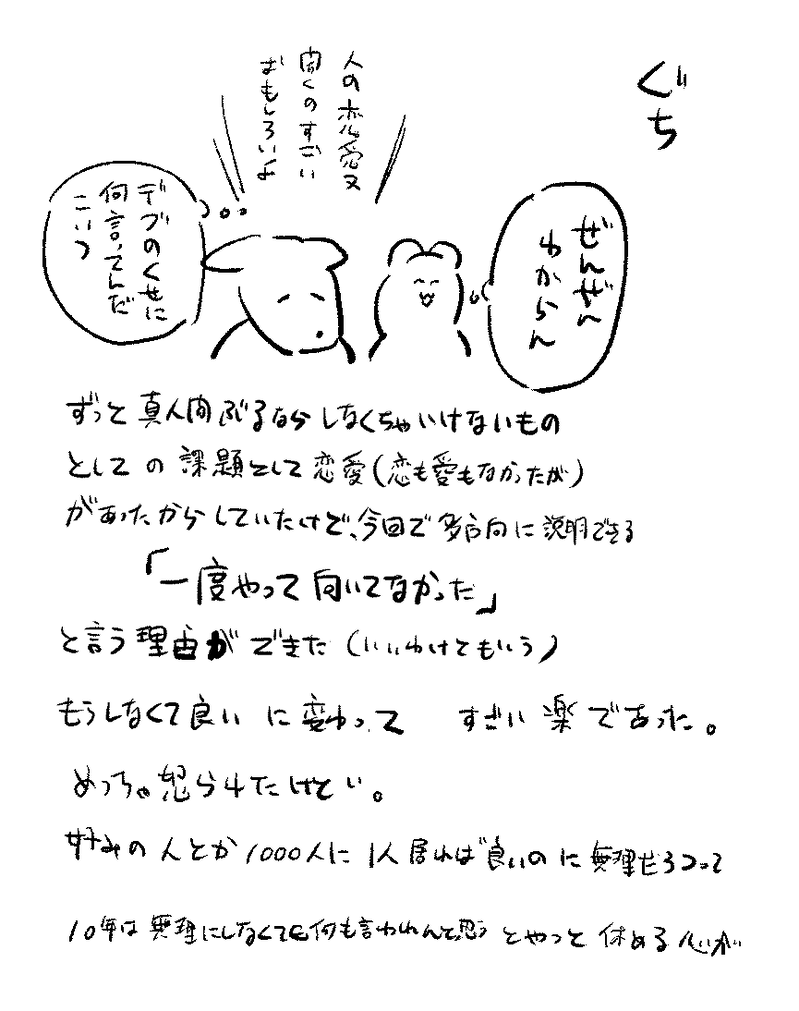 ぐち
人の恋愛又
聞くのすごい
おもしろいよ
ぜんぜん
わからん
デブのくせに
何言ってんだ
こいつ
ずっと真人間ぶるならしなくちゃいけないもの
としての課題として恋愛(恋も愛もなかったが)
があったからしていたけど、今回で多方向に説明できる
「一度やって向いてなかった」
と言う理由ができた(いいわけともいう)
もうしなくて良いに変わって すごい楽であった。
めっちゃ怒られたけどい。
好みの人とか1000人に1人居れば良いのに無理だろつって
10年は無理にしなくても何も言われんと思うとやっと休める心が